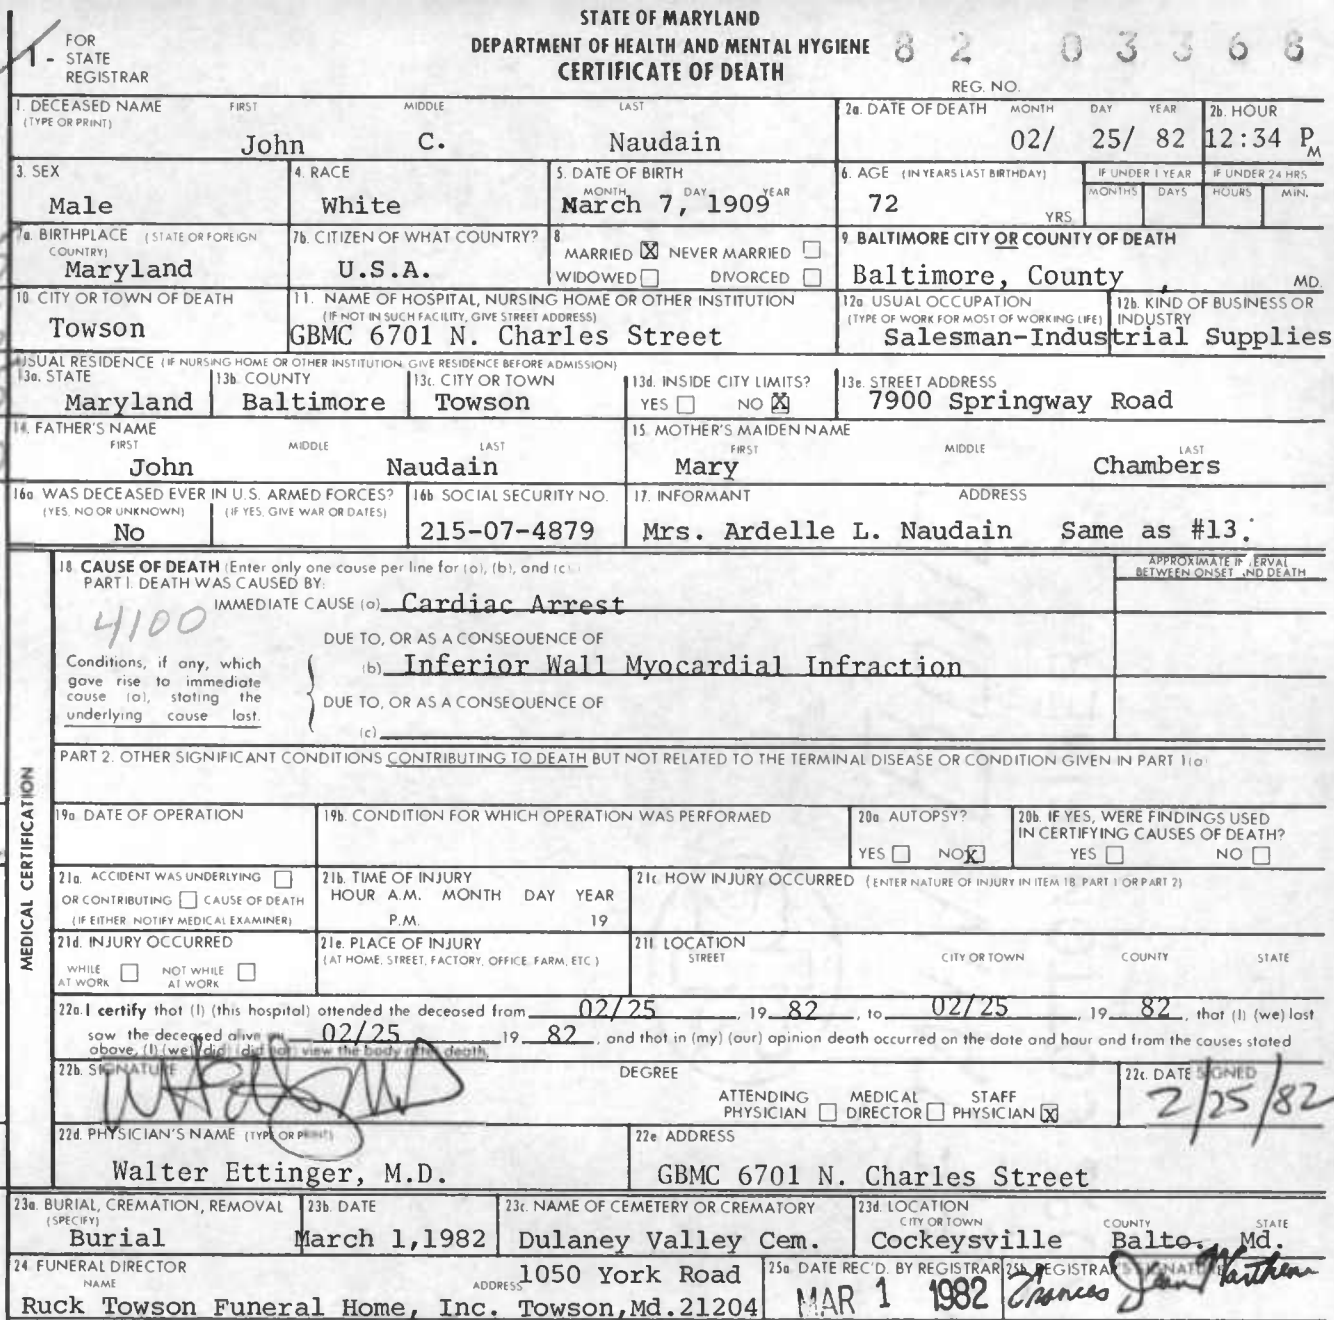 STATE OF MARYLAND
DEPARTMENT OF HEALTH AND MENTAL HYGIENE
CERTIFICATE OF DEATH
1 - FOR STATE REGISTRAR
82 03368
REG. NO.
1. DECEASED NAME (TYPE OR PRINT) FIRST MIDDLE LAST
John C. Naudain
2a. DATE OF DEATH MONTH DAY YEAR
02/ 25/ 82
2b. HOUR
12:34 P M
3. SEX
Male
4. RACE
White
5. DATE OF BIRTH
MONTH DAY YEAR
March 7, 1909
6. AGE (IN YEARS LAST BIRTHDAY)
72 YRS
IF UNDER 1 YEAR MONTHS DAYS
IF UNDER 24 HRS HOURS MIN.
7a. BIRTHPLACE (STATE OR FOREIGN COUNTRY)
Maryland
7b. CITIZEN OF WHAT COUNTRY?
U.S.A.
8.
MARRIED X NEVER MARRIED
WIDOWED DIVORCED
9. BALTIMORE CITY OR COUNTY OF DEATH
Baltimore, County , MD.
10. CITY OR TOWN OF DEATH
Towson
11. NAME OF HOSPITAL, NURSING HOME OR OTHER INSTITUTION
(IF NOT IN SUCH FACILITY, GIVE STREET ADDRESS)
GBMC 6701 N. Charles Street
12a. USUAL OCCUPATION
(TYPE OF WORK FOR MOST OF WORKING LIFE)
12b. KIND OF BUSINESS OR INDUSTRY
Salesman-Industrial Supplies
USUAL RESIDENCE (IF NURSING HOME OR OTHER INSTITUTION GIVE RESIDENCE BEFORE ADMISSION)
13a. STATE
Maryland
13b. COUNTY
Baltimore
13c. CITY OR TOWN
Towson
13d. INSIDE CITY LIMITS?
YES NO X
13e. STREET ADDRESS
7900 Springway Road
14. FATHER'S NAME
FIRST MIDDLE LAST
John Naudain
15. MOTHER'S MAIDEN NAME
FIRST MIDDLE LAST
Mary Chambers
16a. WAS DECEASED EVER IN U.S. ARMED FORCES?
(YES, NO OR UNKNOWN) (IF YES, GIVE WAR OR DATES)
No
16b. SOCIAL SECURITY NO.
215-07-4879
17. INFORMANT ADDRESS
Mrs. Ardelle L. Naudain Same as #13.
MEDICAL CERTIFICATION
18. CAUSE OF DEATH (Enter only one cause per line for (a), (b), and (c).)
APPROXIMATE INTERVAL BETWEEN ONSET AND DEATH
PART I. DEATH WAS CAUSED BY:
IMMEDIATE CAUSE (a) Cardiac Arrest
4100
DUE TO, OR AS A CONSEQUENCE OF
Conditions, if any, which gave rise to immediate cause (a), stating the underlying cause last.
(b) Inferior Wall Myocardial Infraction
DUE TO, OR AS A CONSEQUENCE OF
(c)
PART 2. OTHER SIGNIFICANT CONDITIONS CONTRIBUTING TO DEATH BUT NOT RELATED TO THE TERMINAL DISEASE OR CONDITION GIVEN IN PART 1(a)
19a. DATE OF OPERATION
19b. CONDITION FOR WHICH OPERATION WAS PERFORMED
20a. AUTOPSY?
YES NO X
20b. IF YES, WERE FINDINGS USED IN CERTIFYING CAUSES OF DEATH?
YES NO
21a. ACCIDENT WAS UNDERLYING
OR CONTRIBUTING CAUSE OF DEATH
(IF EITHER, NOTIFY MEDICAL EXAMINER)
21b. TIME OF INJURY
HOUR A.M. MONTH DAY YEAR
P.M. 19
21c. HOW INJURY OCCURRED (ENTER NATURE OF INJURY IN ITEM 18, PART 1 OR PART 2)
21d. INJURY OCCURRED
WHILE AT WORK NOT WHILE AT WORK
21e. PLACE OF INJURY
(AT HOME, STREET, FACTORY, OFFICE, FARM, ETC.)
21f. LOCATION
STREET CITY OR TOWN COUNTY STATE
22a. I certify that (I) (this hospital) attended the deceased from 02/25, 19 82, to 02/25, 19 82, that (I) (we) last
saw the deceased alive on 02/25 19 82, and that in (my) (our) opinion death occurred on the date and hour and from the causes stated
above, (I) (we) (did) (did not) view the body after death.
22b. SIGNATURE
DEGREE
ATTENDING PHYSICIAN MEDICAL DIRECTOR STAFF PHYSICIAN X
22c. DATE SIGNED
2/25/82
22d. PHYSICIAN'S NAME (TYPE OR PRINT)
Walter Ettinger, M.D.
22e. ADDRESS
GBMC 6701 N. Charles Street
23a. BURIAL, CREMATION, REMOVAL (SPECIFY)
Burial
23b. DATE
March 1,1982
23c. NAME OF CEMETERY OR CREMATORY
Dulaney Valley Cem.
23d. LOCATION
CITY OR TOWN COUNTY STATE
Cockeysville Balto. Md.
24. FUNERAL DIRECTOR
NAME ADDRESS
1050 York Road
Ruck Towson Funeral Home, Inc. Towson,Md.21204
25a. DATE REC'D. BY REGISTRAR
MAR 1 1982
25b. REGISTRAR'S SIGNATURE
Frances Jean Warthen